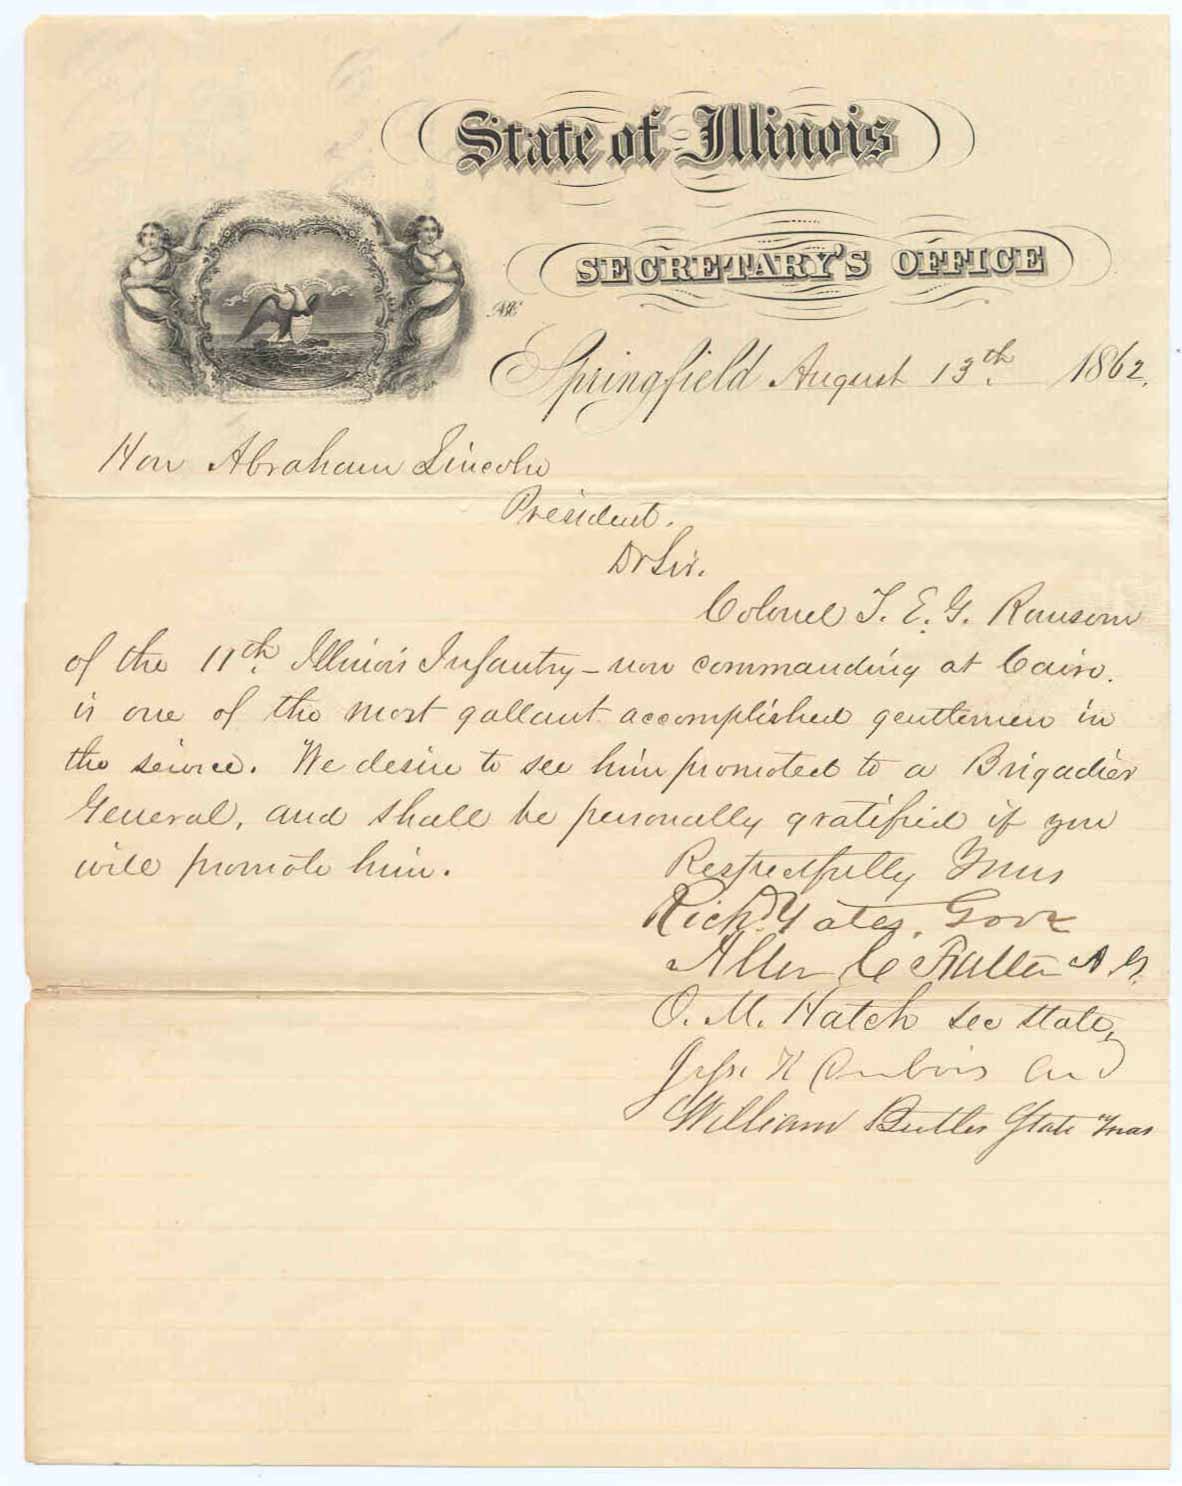 State of Illinois
SECRETARY'S OFFICE
Springfield August 13th. 1862.
Hon Abraham Lincoln
President.
Dr Sir.
Colonel T. E. G. Ransom
of the 11th. Illinois Infantry - now commanding at Cairo.
is one of the most gallant accomplished gentlemen in
the service. We desire to see him promoted to a Brigadier
General, and shall be personally gratified if you
will promote him.
Respectfully Yours
Richd. Yates, Govr
Allen C Fuller A G.
O. M. Hatch Sec State,
Jesse K Dubois Aud
William Butler State Treas